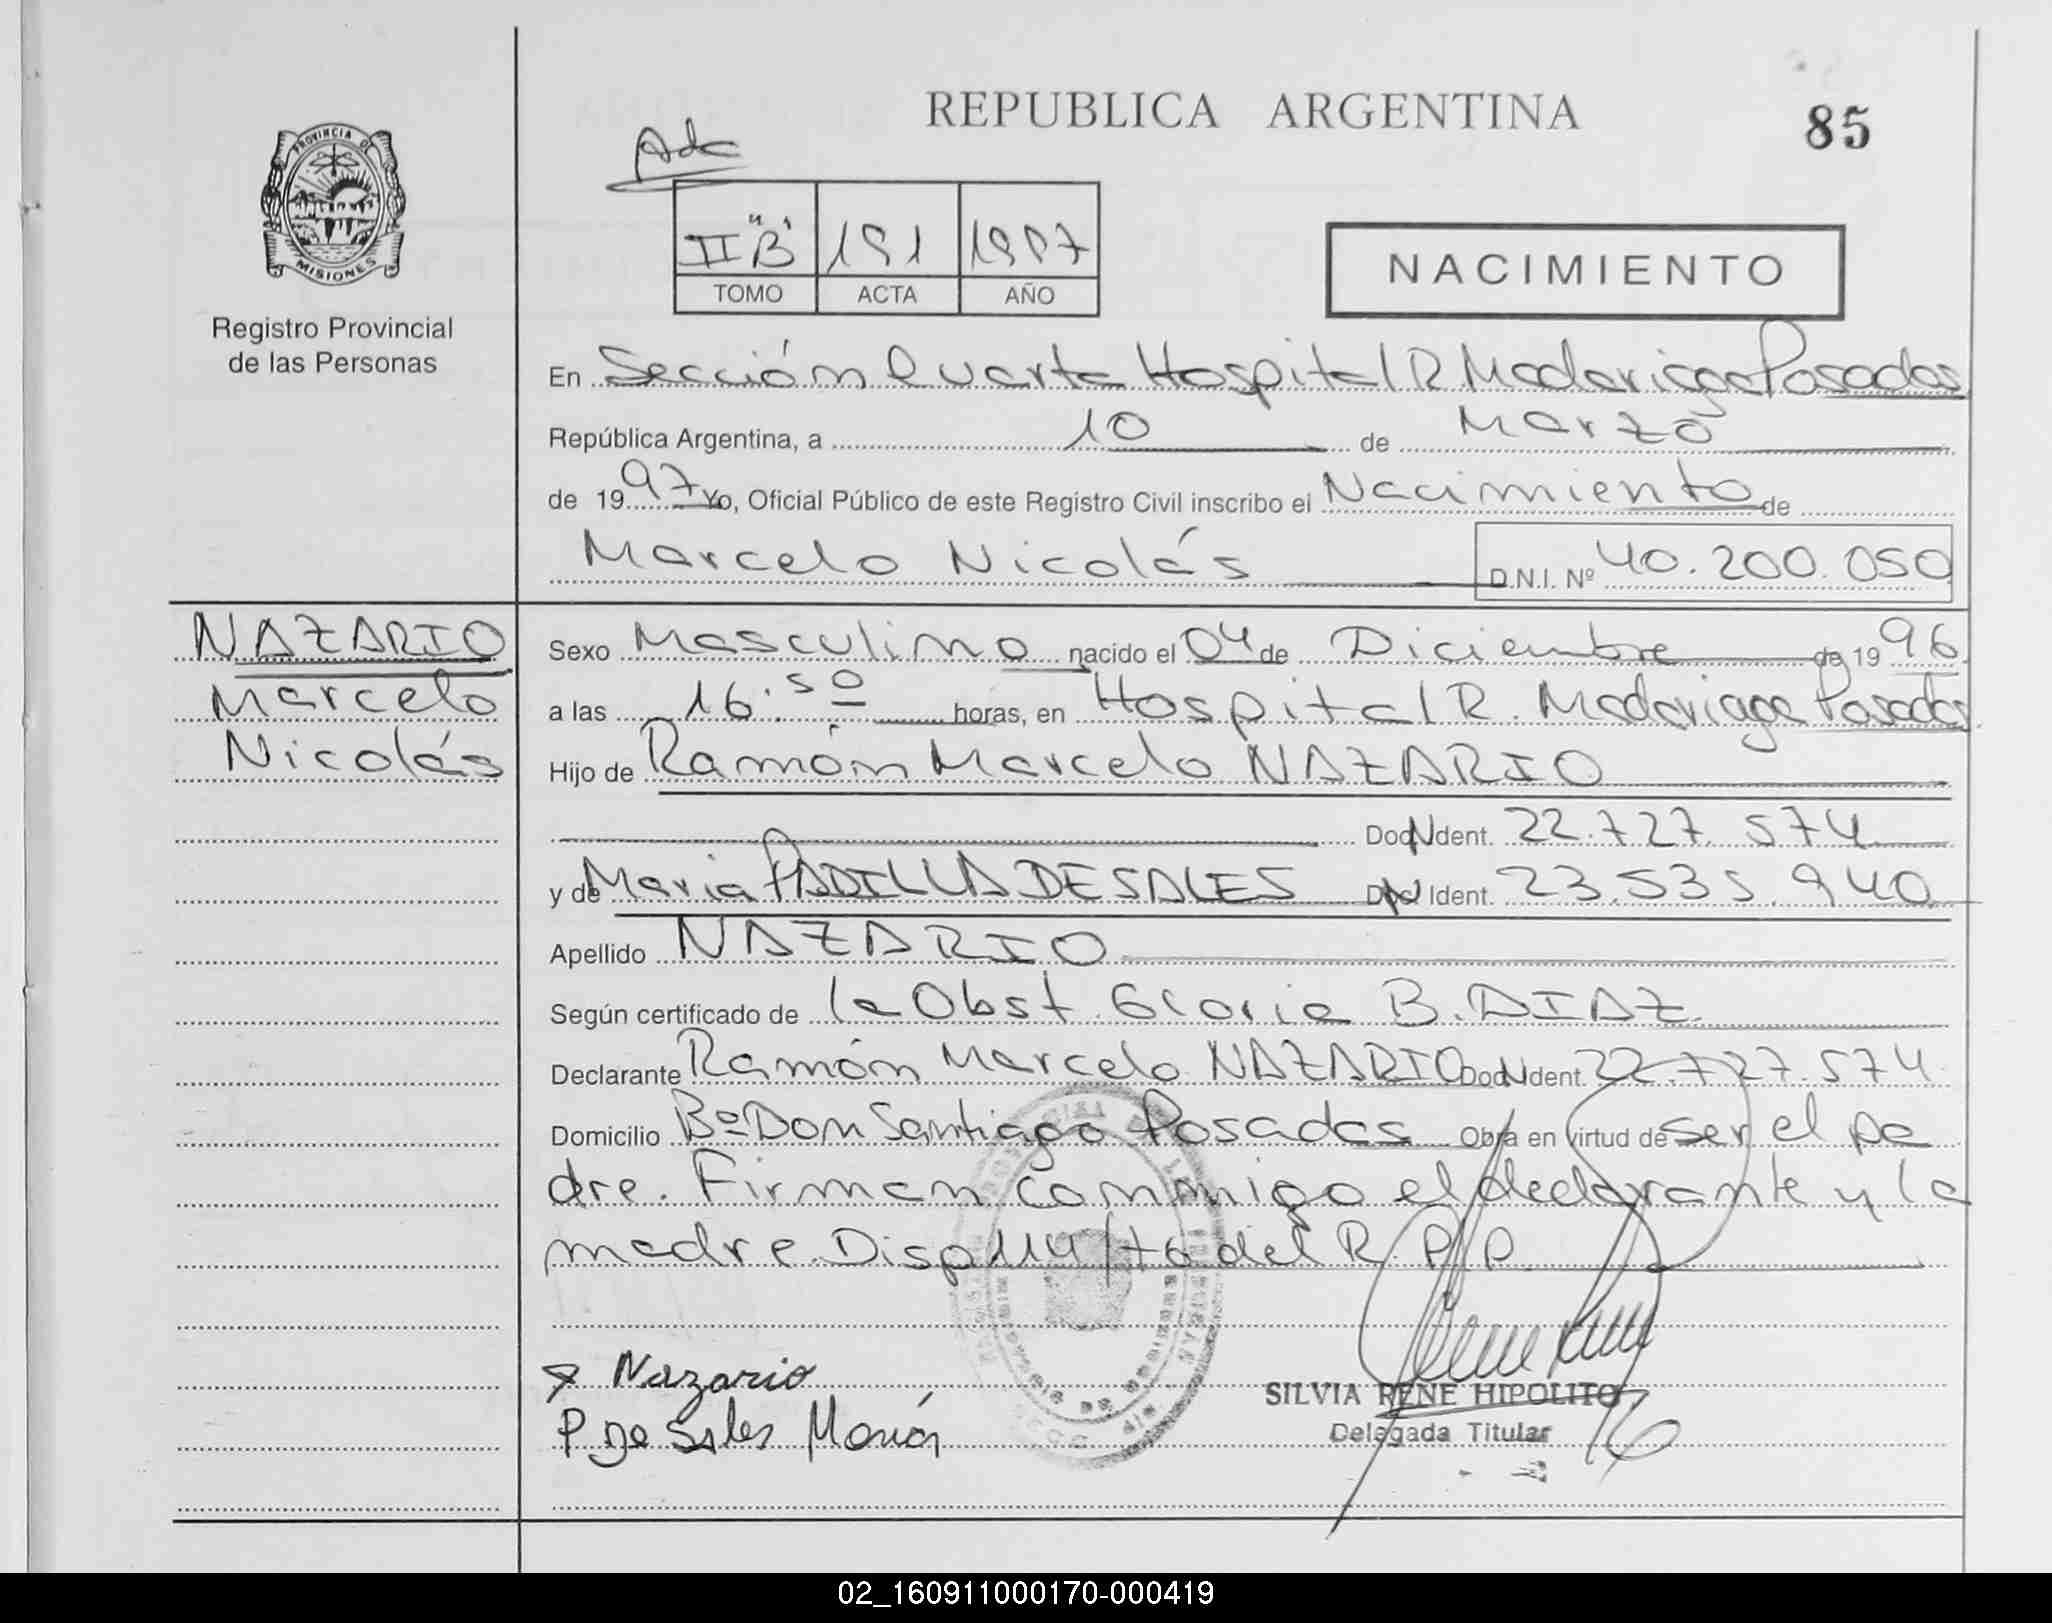 REPUBLICA ARGENTINA
85
PROVINCIA DE
MISIONES
Registro Provincial
de las Personas
II "B" 191 1997
TOMO ACTA AÑO
NACIMIENTO
En Sección Cuarta Hospital R Madariaga Posadas
República Argentina, a 10 de Marzo
de 1997 Yo, Oficial Público de este Registro Civil inscribo el Nacimiento de
Marcelo Nicolás D.N.I. Nº 40.200.050
NAZARIO
Marcelo
Nicolás
Sexo Masculino nacido el 04 de Diciembre de 1996
a las 16.50 horas, en Hospital R. Madariaga Posadas
Hijo de Ramón Marcelo NAZARIO
Doc Ident. 22.727.574
y de Maria PADILLA DE SALES Ident. 23.535.940
Apellido NAZARIO
Según certificado de la Obst. Gloria B. DIAZ
Declarante Ramón Marcelo NAZARIO Doc Ident. 22.727.574
Domicilio Bº Don Santiago Posadas Obra en virtud de ser el pa
dre. Firman conmigo el declarante y la
madre. Disp 114/76 del R.P.P.
Nazario
P. De Sales María
SILVIA RENE HIPOLITO
Delegada Titular
02_160911000170-000419